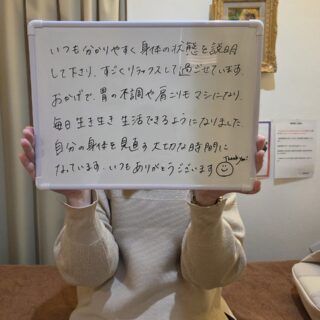 いつも分かりやすく身体の状態を説明
して下さり、すごくリラックスして過ごせています。
おかげで、胃の不調や肩こりもマシになり、
毎日生き生き生活できるようになりました。
自分の身体を見直す大切な時間に
なっています。いつもありがとうございます
Thank you!